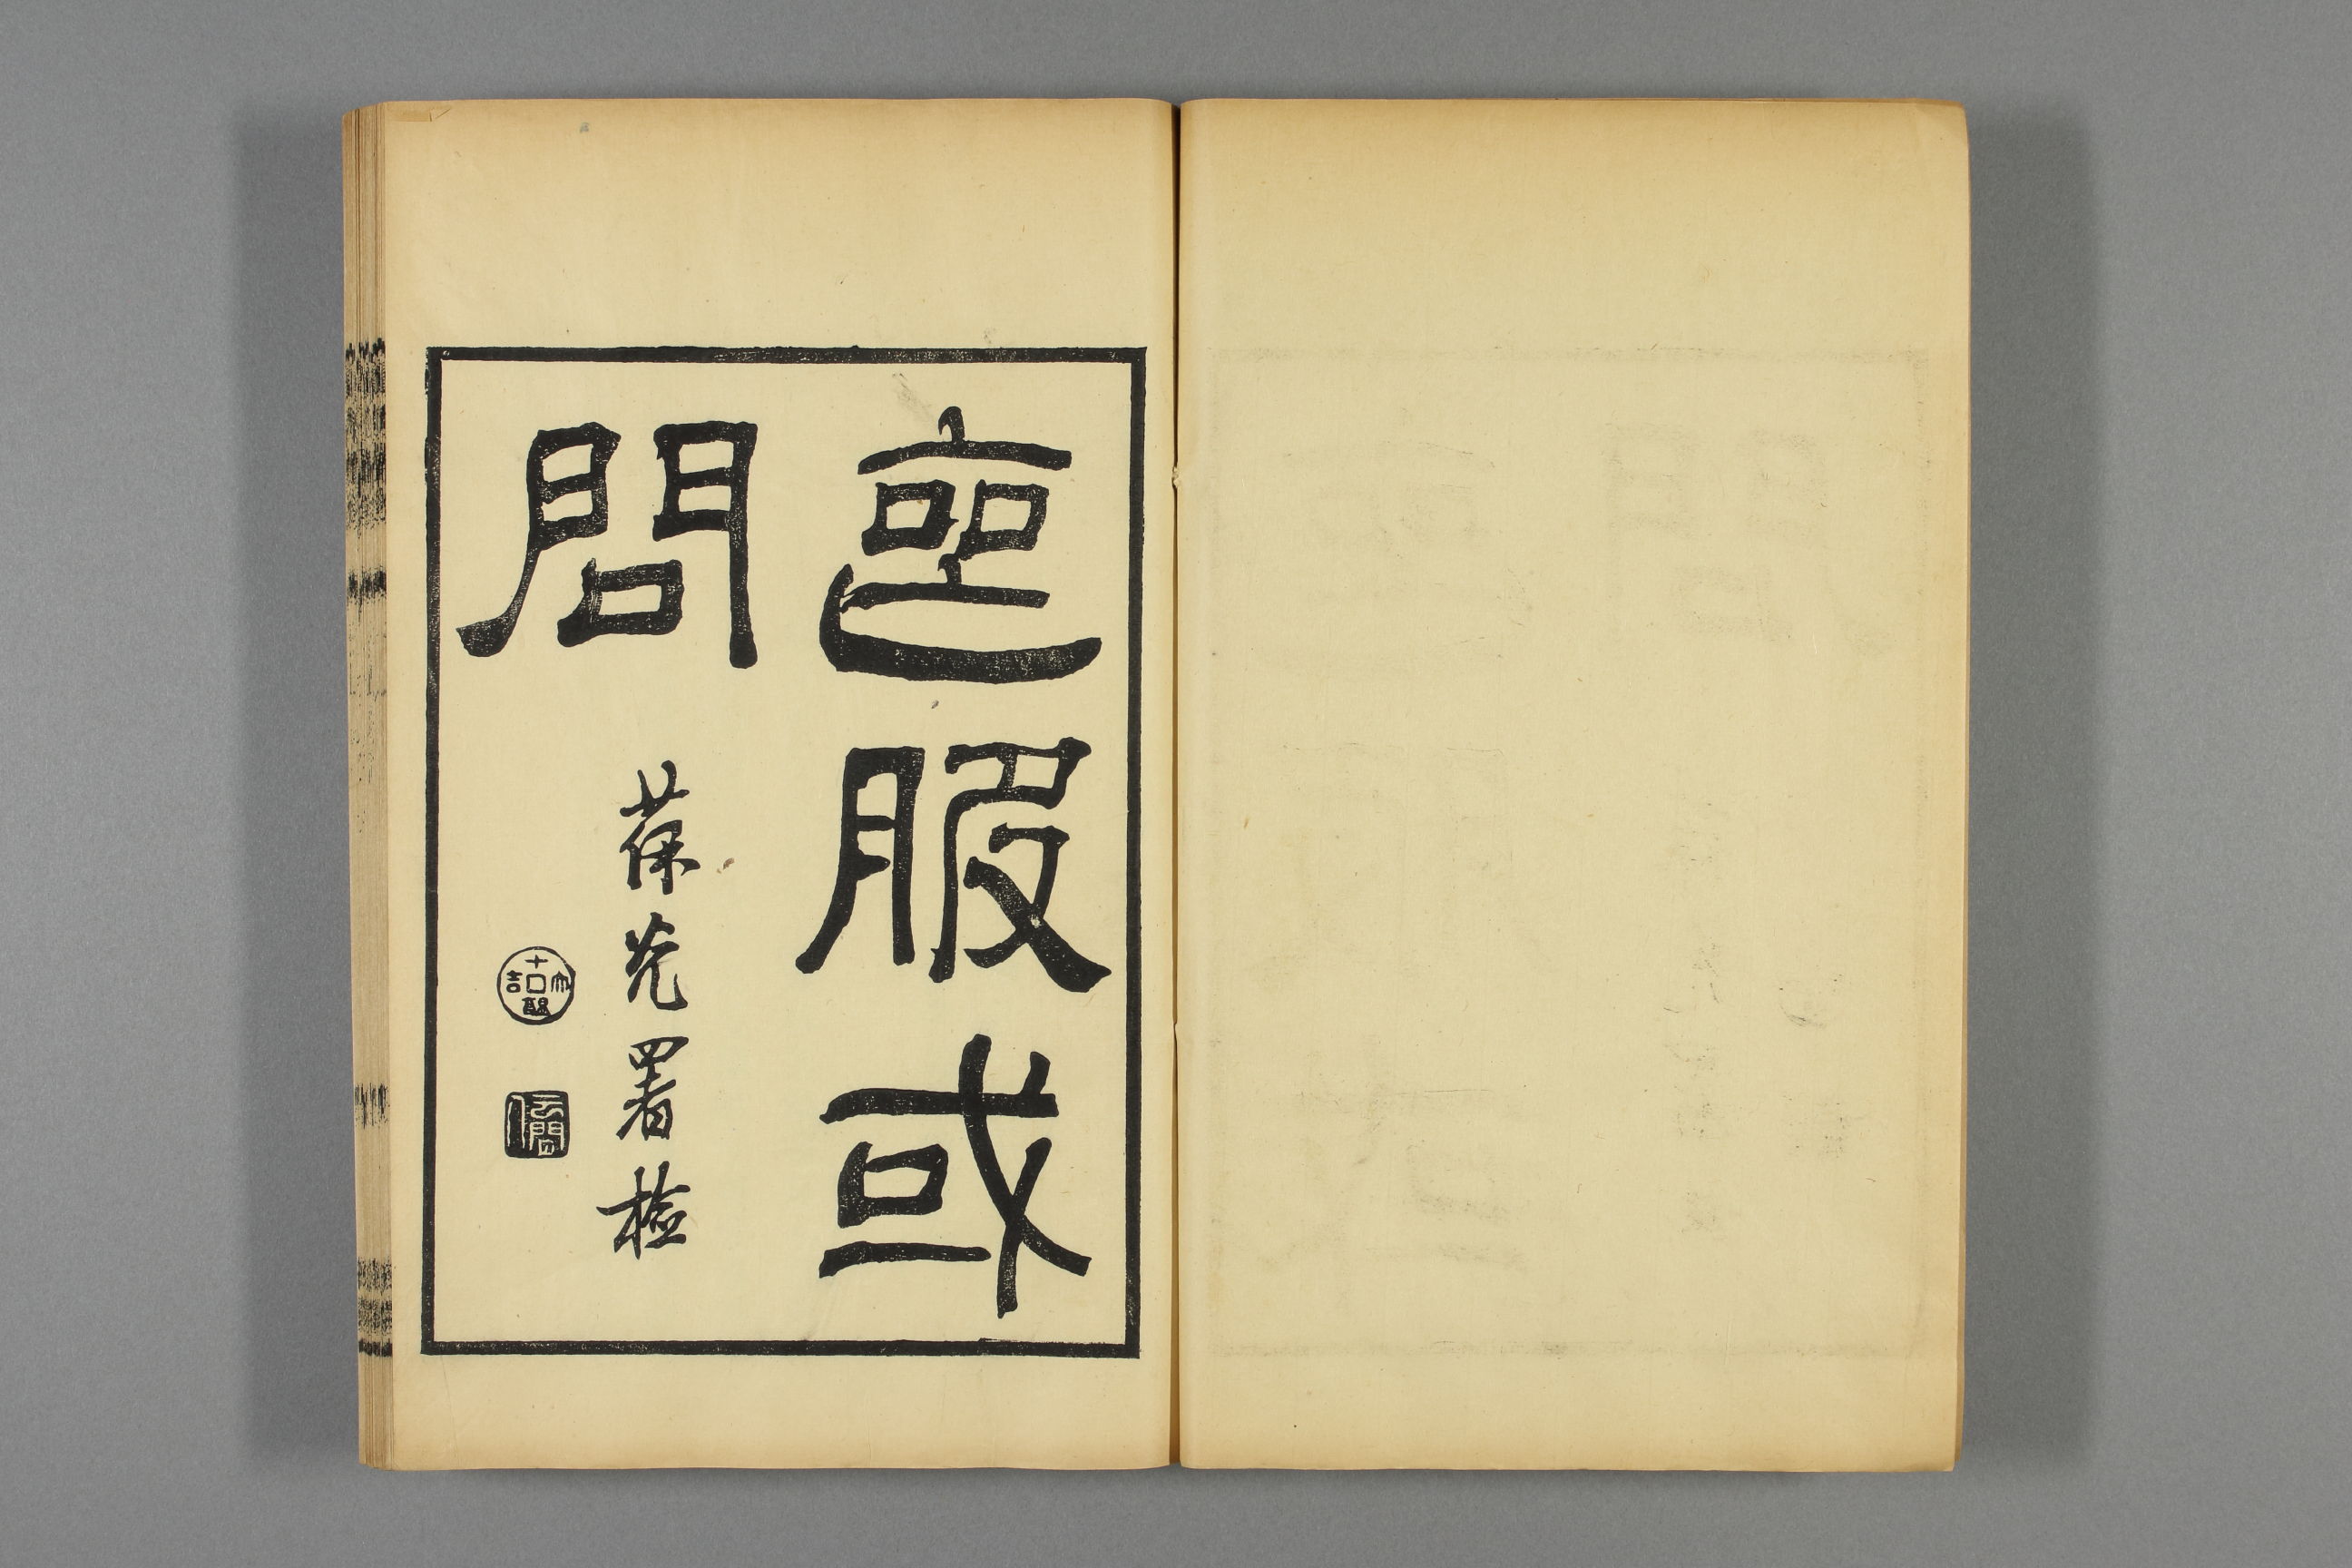 喪服或
問
葆光署檢